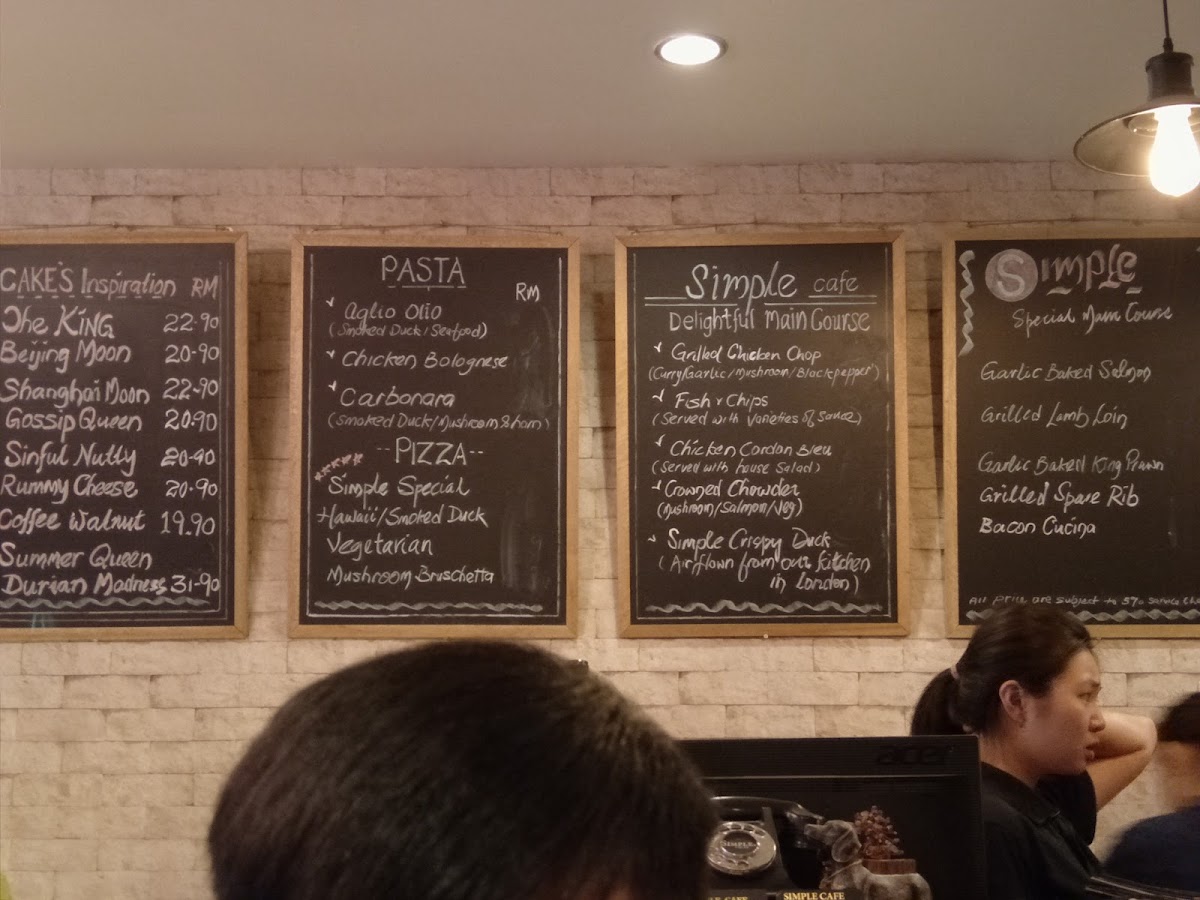 CAKE'S Inspiration RM
The KING 22.90
Beijing Moon 20-90
Shanghai Moon 22-90
Gossip Queen 20.90
Sinful Nutty 20-90
Rummy Cheese 20.90
Coffee Walnut 19.90
Summer Queen
Durian Madness 31-90
PASTA
RM
Aglio Olio
(Smoked Duck/Seafood)
Chicken Bolognese
Carbonara
(Smoked Duck/Mushroom & ham)
--PIZZA--
Simple Special
Hawaii/Smoked Duck
Vegetarian
Mushroom Bruschetta
Simple cafe
Delightful Main Course
Grilled Chicken Chop
(Curry/Garlic/Mushroom/Blackpepper)
Fish & Chips
(Served with Varieties of Sauce)
Chicken Cordon Bleu
(Served with house Salad)
Crowned Chowder
(Mushroom/Salmon/Veg)
Simple Crispy Duck
(Airflown from our kitchen
in London)
Simple
Special Main Course
Garlic Baked Salmon
Grilled Lamb Loin
Garlic Baked King Prawn
Grilled Spare Rib
Bacon Cucina
All price are subject to 5% Service
acer
SIMPLE
SIMPLE CAFE
CAFE